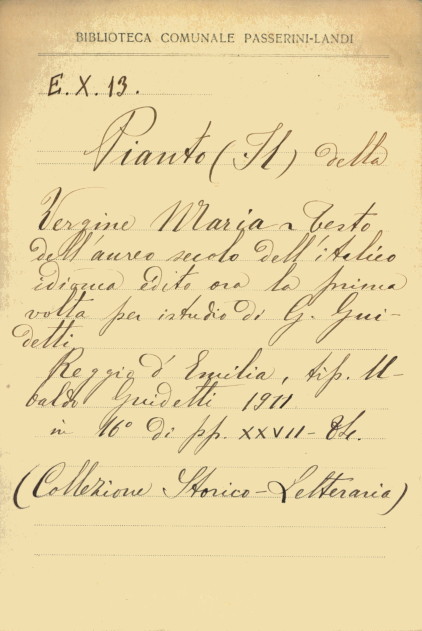 BIBLIOTECA COMUNALE PASSERINI-LANDI
E. X. 13.
Pianto (Il) della
Vergine Maria ~ Testo
dell'aureo secolo dell'italico
idioma edito ora la prima
volta per istudio di G. Gui-
detti
Reggio d'Emilia, tip. U-
baldo Guidetti 1911
in 16° di pp. XXVII-84.
(Collezione Storico-Letteraria)